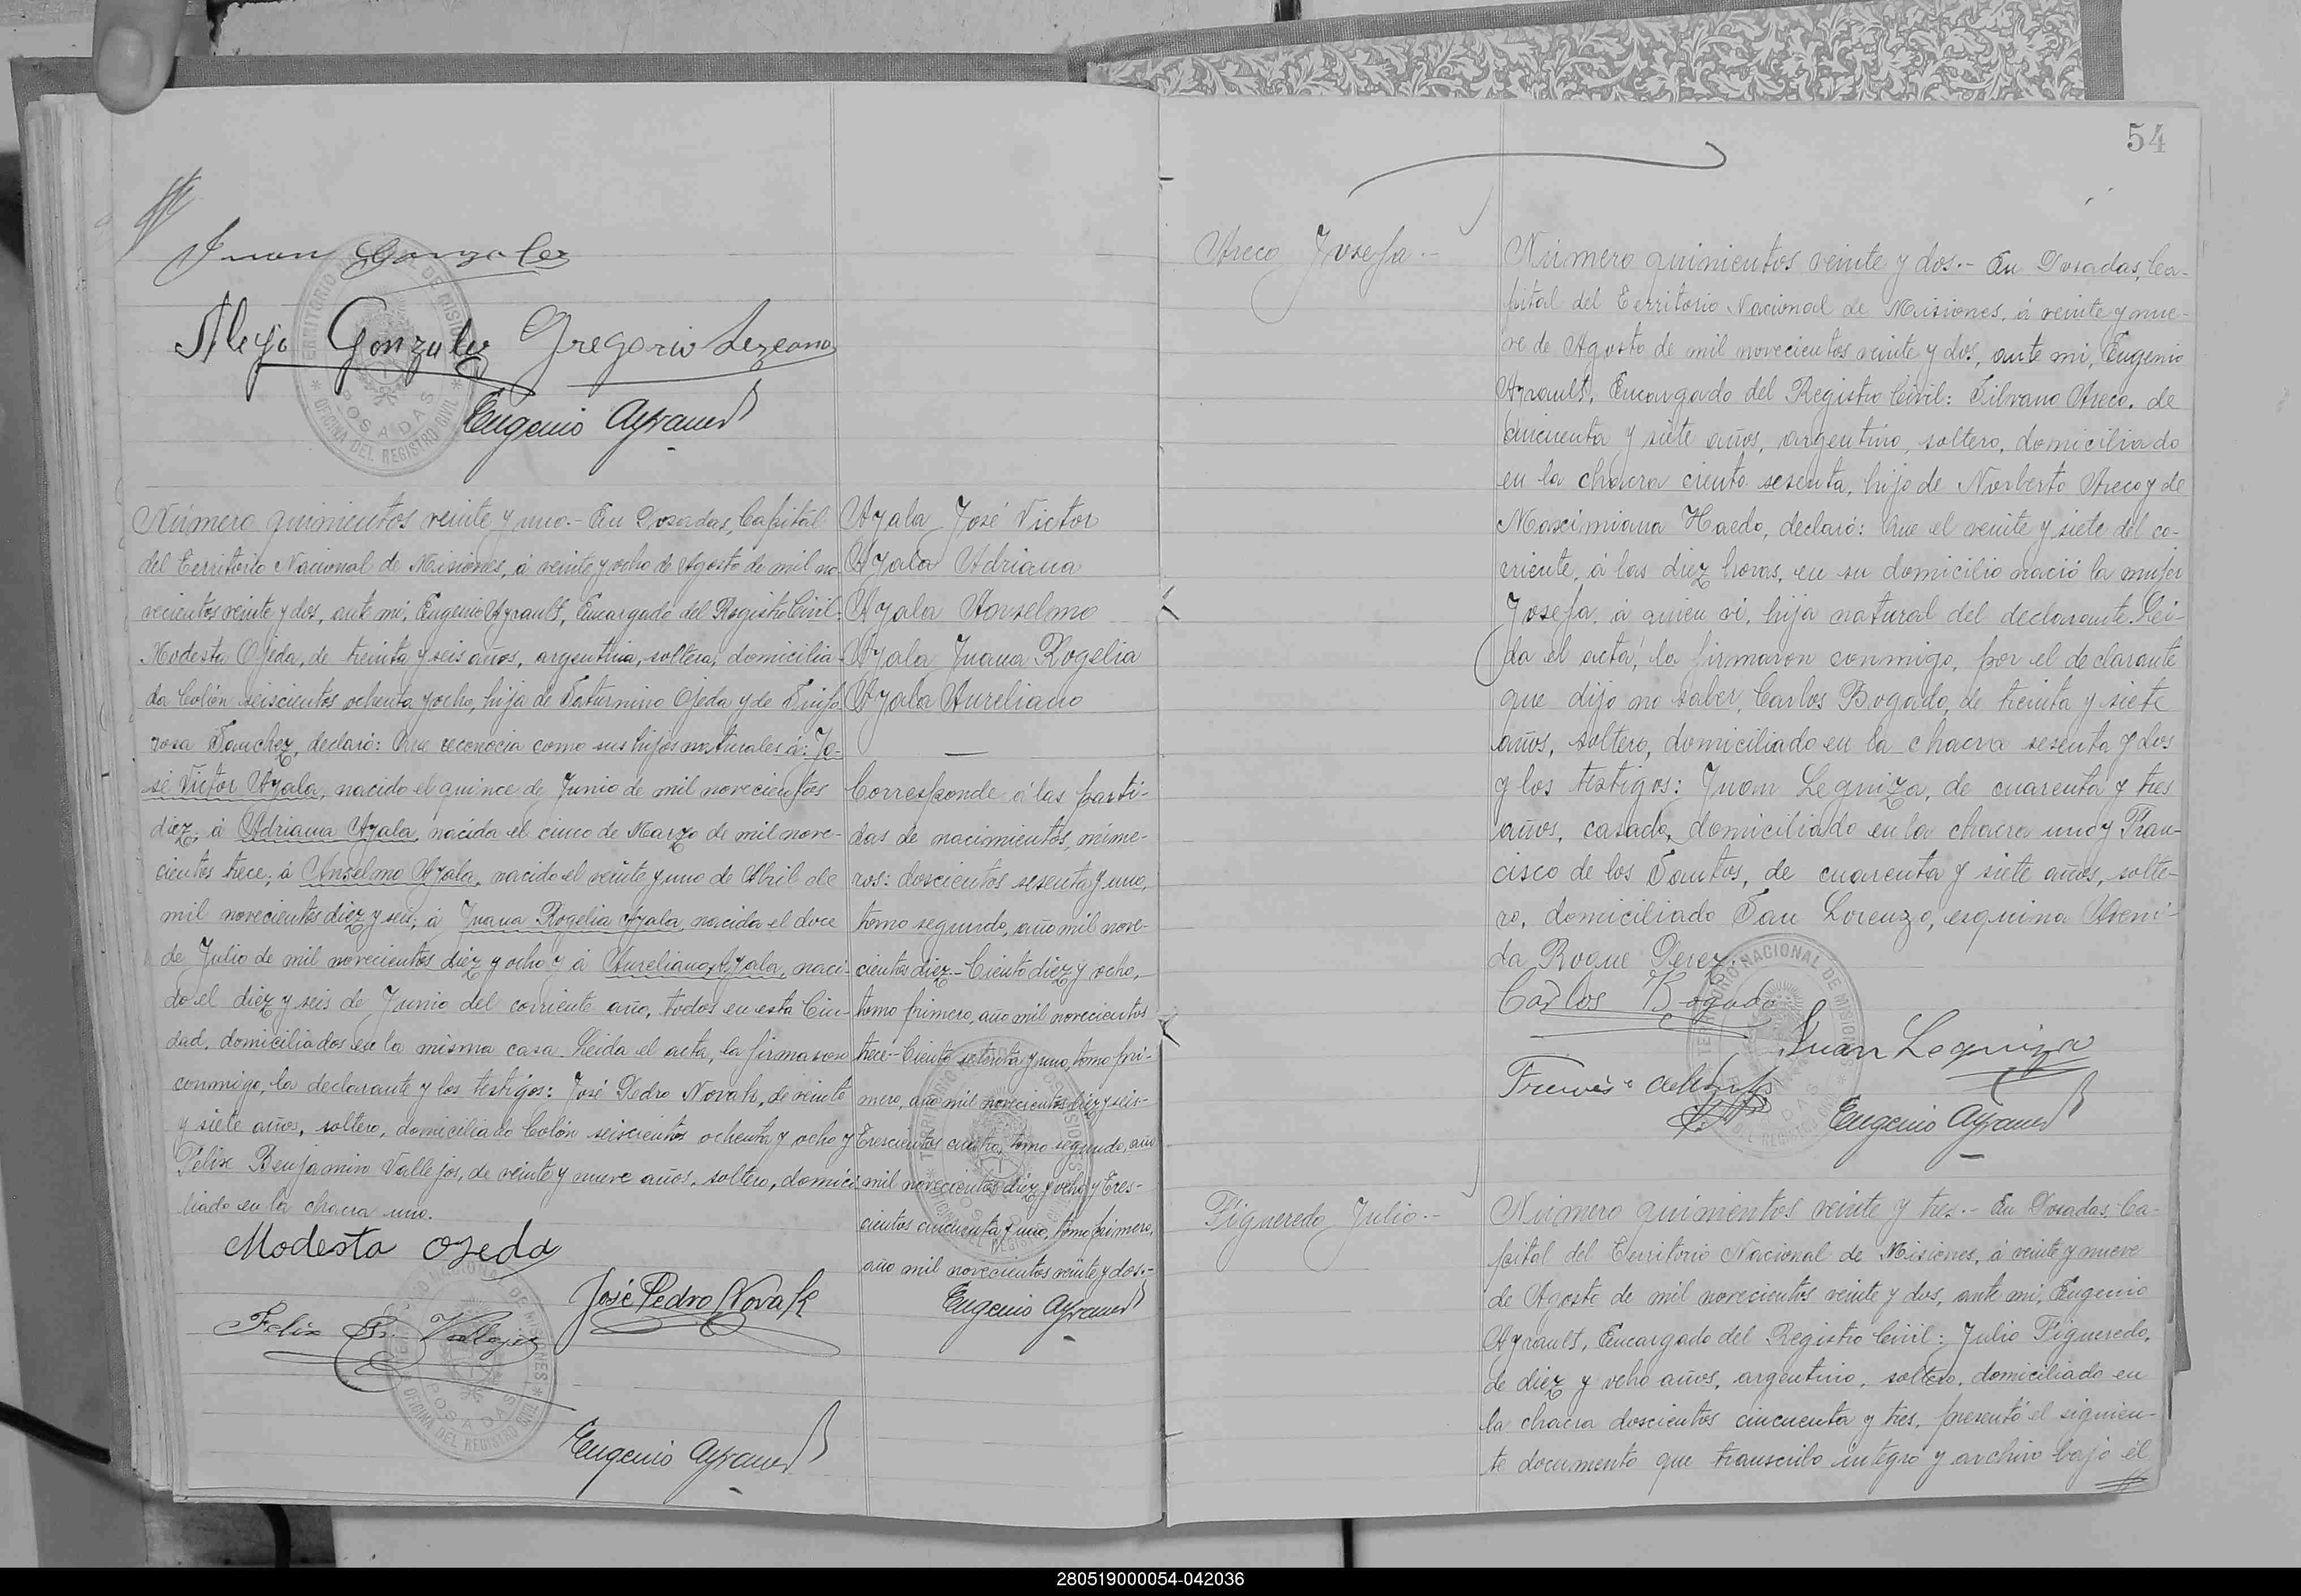 Juan Gonzalez
Alejo Gonzalez Gregorio Lezcano
Eugenio Ayrault
Número quinientos veinte y uno.- En Posadas, Capital
del Territorio Nacional de Misiones, á veinte y ocho de Agosto de mil no-
vecientos veinte y dos, ante mi, Eugenio Ayrault, Encargado del Registro Civil:
Modesta Ojeda, de treinta y seis años, argentina, soltera, domicilia-
da Colón seiscientos ochenta y ocho, hija de Saturnino Ojeda y de Trifo
rosa Sanchez, declaró: Que reconocia como sus hijos naturales á: Jo-
sé Victor Ayala, nacido el quince de Junio de mil novecientos
diez; á Adriana Ayala, nacida el cinco de Marzo de mil nove-
cientos trece; á Anselmo Ayala, nacido el veinte y uno de Abril de
mil novecientos diez y seis; á Juana Rogelia Ayala, nacida el doce
de Julio de mil novecientos diez y ocho y á Aureliano Ayala, naci-
do el diez y seis de Junio del corriente año, todos en esta Ciu-
dad, domiciliados en la misma casa. Leida el acta, la firmaron
conmigo, la declarante y los testigos: José Pedro Novak, de veinte
y siete años, soltero, domiciliado Colón seiscientos ochenta y ocho y
Felix Benjamin Vallejos, de veinte y nueve años, soltero, domici
liado en la chacra uno.
Modesta Ojeda
José Pedro Novak
Felix B. Vallejos
Eugenio Ayrault
Ayala José Victor
Ayala Adriana
Ayala Anselmo
Ayala Juana Rogelia
Ayala Aureliano
Corresponde á las parti-
das de nacimientos, núme-
ros: doscientos sesenta y uno,
tomo segundo, año mil nove-
cientos diez- Ciento diez y ocho,
tomo primero, año mil novecientos
trece- Ciento setenta y uno, tomo pri-
mero, año mil novecientos diez y seis-
Trescientos cuatro, tomo segundo, año
mil novecientos diez y ocho y Tres-
cientos cincuenta y uno, tomo primero,
año mil novecientos veinte y dos.-
Eugenio Ayrault
TERRITORIO NACIONAL DE MISIONES
POSADAS
OFICINA DEL REGISTRO CIVIL
54
Areco Josefa.-
Número quinientos veinte y dos.- En Posadas, Ca-
pital del Territorio Nacional de Misiones, á veinte y nue-
ve de Agosto de mil novecientos veinte y dos, ante mi, Eugenio
Ayrault, Encargado del Registro Civil: Silvano Areco, de
cincuenta y siete años, argentino, soltero, domiciliado
en la chacra ciento sesenta, hijo de Norberto Areco y de
Maximiana Haedo, declaró: Que el veinte y siete del co-
rriente, á las diez horas, en su domicilio nació la mujer
Josefa, á quien vi, hija natural del declarante. Lei-
da el acta, la firmaron conmigo, por el declarante
que dijo no saber, Carlos Bogado, de treinta y siete
años, soltero, domiciliado en la chacra sesenta y dos
y los testigos: Juan Leguiza, de cuarenta y tres
años, casado, domiciliado en la chacra uno y Fran-
cisco de los Santos, de cuarenta y siete años, solte-
ro, domiciliado San Lorenzo, esquina Aveni-
da Roque Perez.
Carlos Bogado
Juan Leguiza
Eugenio Ayrault
Figueredo Julio.-
Número quinientos veinte y tres.- En Posadas, Ca-
pital del Territorio Nacional de Misiones, á veinte y nueve
de Agosto de mil novecientos veinte y dos, ante mi, Eugenio
Ayrault, Encargado del Registro Civil: Julio Figueredo,
de diez y ocho años, argentino, soltero, domiciliado en
la chacra doscientos cincuenta y tres, presentó el siguien-
te documento que transcribo integro y archivo bajo el
280519000054-042036